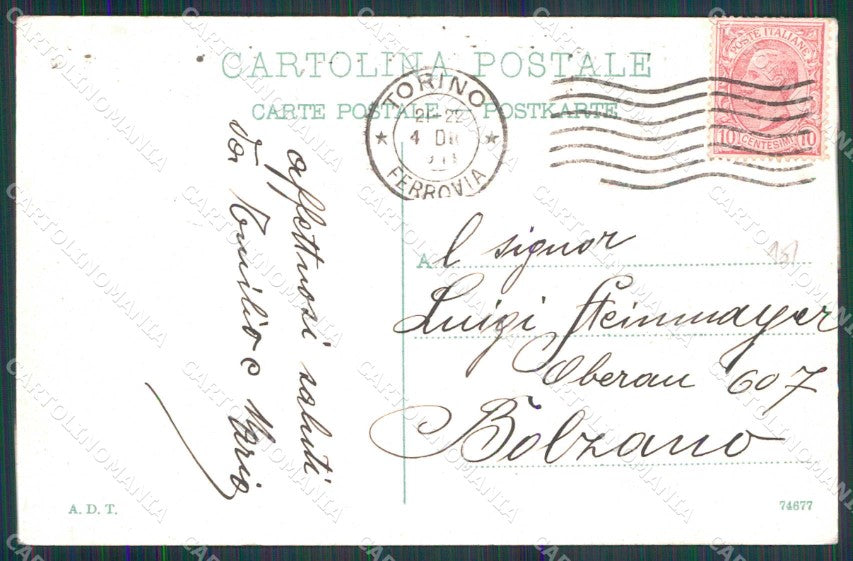 CARTOLINA POSTALE
CARTE POSTALE - POSTKARTE
TORINO
21-22
4 DI
FERROVIA
POSTE ITALIANE
10 CENTESIMI 10
Al signor
Luigi Steinmayer
Oberau 607
Bolzano
affettuosi saluti
da Emilio e Mario
A. D. T.
74677
CARTOLINOMANIA